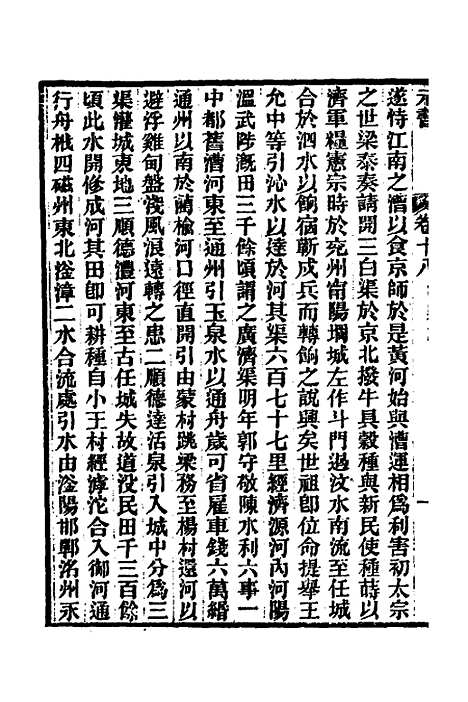 元書 卷十八
遂恃江南之漕以食京師於是黃河始與漕運相爲利害初太宗
之世梁泰奏請開三白渠於京北撥牛具穀種與新民使種蒔以
濟軍糧憲宗時於兖州甯陽堈城左作斗門遏汶水南流至任城
合於泗水以餉宿蘄戍兵而轉餉之說興矣世祖卽位命提舉王
允中等引沁水以達於河其渠六百七十七里經濟源河內河陽
溫武陟溉田三千餘頃謂之廣濟渠明年郭守敬陳水利六事一
中都舊漕河東至通州引玉泉水以通舟歲可省雇車錢六萬緡
通州以南於藺榆河口徑直開引由蒙村跳梁務至楊村還河以
避浮雞甸盤淺風浪遠轉之患二順德達活泉引入城中分爲三
渠灌城東地三順德澧河東至古任城失故道没民田千三百餘
頃此水開修成河其田卽可耕種自小王村經滹沱合入御河通
行舟栰四磁州東北滏漳二水合流處引水由滏陽邯鄲洺州永